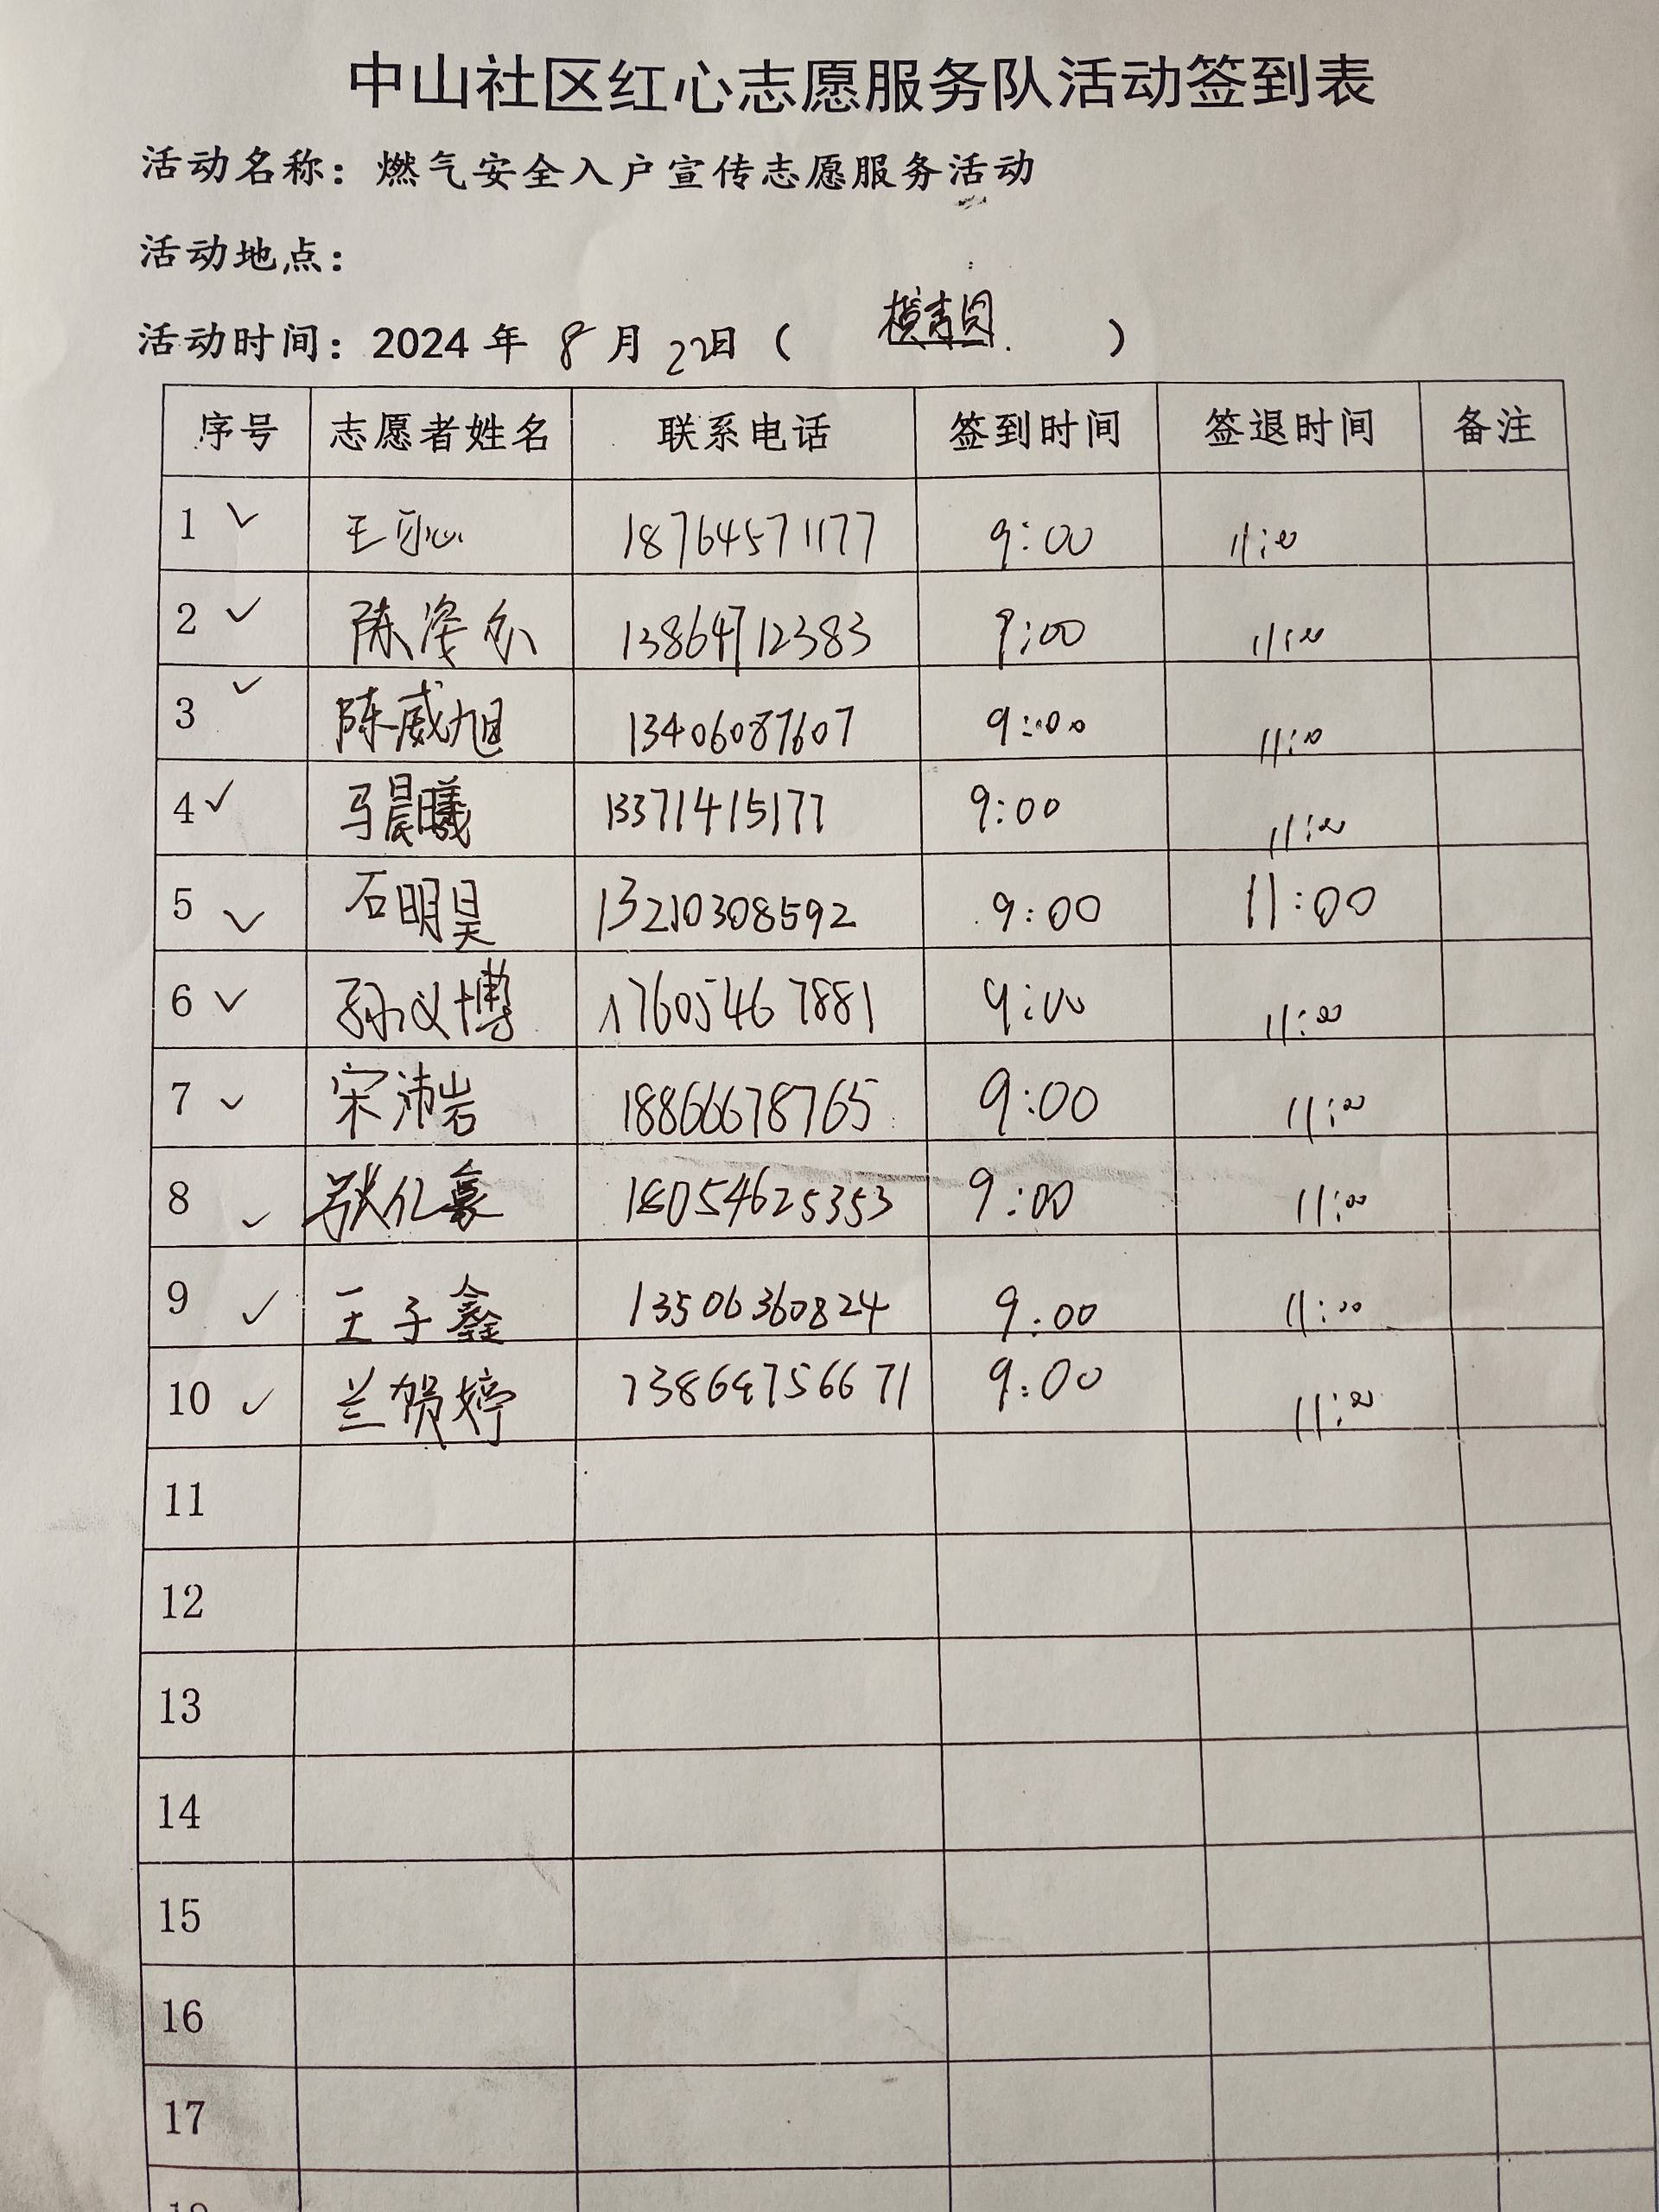 中山社区红心志愿服务队活动签到表
活动名称：燃气安全入户宣传志愿服务活动
活动地点：
活动时间：2024 年 8 月 22日（ ）
序号 志愿者姓名 联系电话 签到时间 签退时间 备注
1 ✓ 王 18764571177 9:00 11:00
2 ✓ 陈 13864712383 9:00 11:00
3 ✓ 陈威旭 13406087607 9:00 11:00
4 ✓ 马晨曦 13371415177 9:00 11:00
5 ✓ 石明昊 13210308592 9:00 11:00
6 ✓ 孙义博 17605467881 9:00 11:00
7 ✓ 宋沛岩 18866678765 9:00 11:00
8 ✓ 张亿豪 18054625353 9:00 11:00
9 ✓ 王子鑫 13506360824 9:00 11:00
10 ✓ 兰贺婷 13864756671 9:00 11:00
11
12
13
14
15
16
17